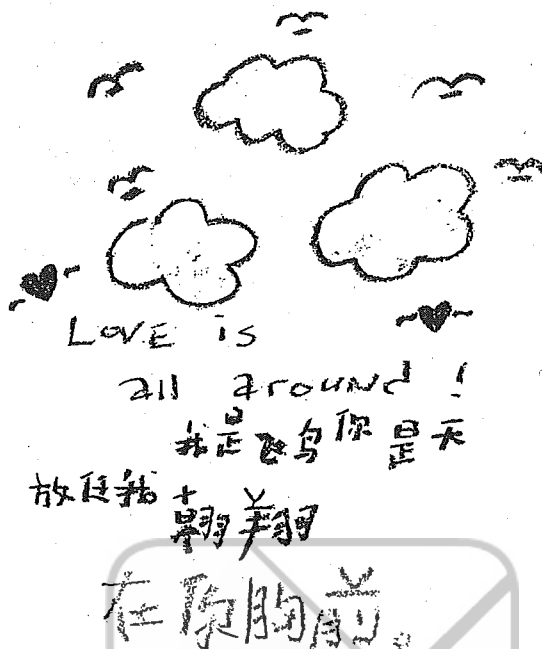 Love is
all around!
我是飞鸟你是天
放任我翱翔
在你胸前。